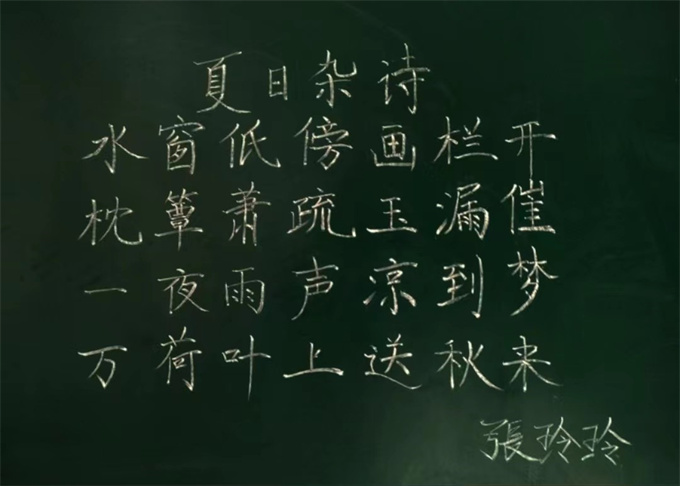 夏日杂诗
水窗低傍画栏开
枕簟萧疏玉漏催
一夜雨声凉到梦
万荷叶上送秋来
張玲玲